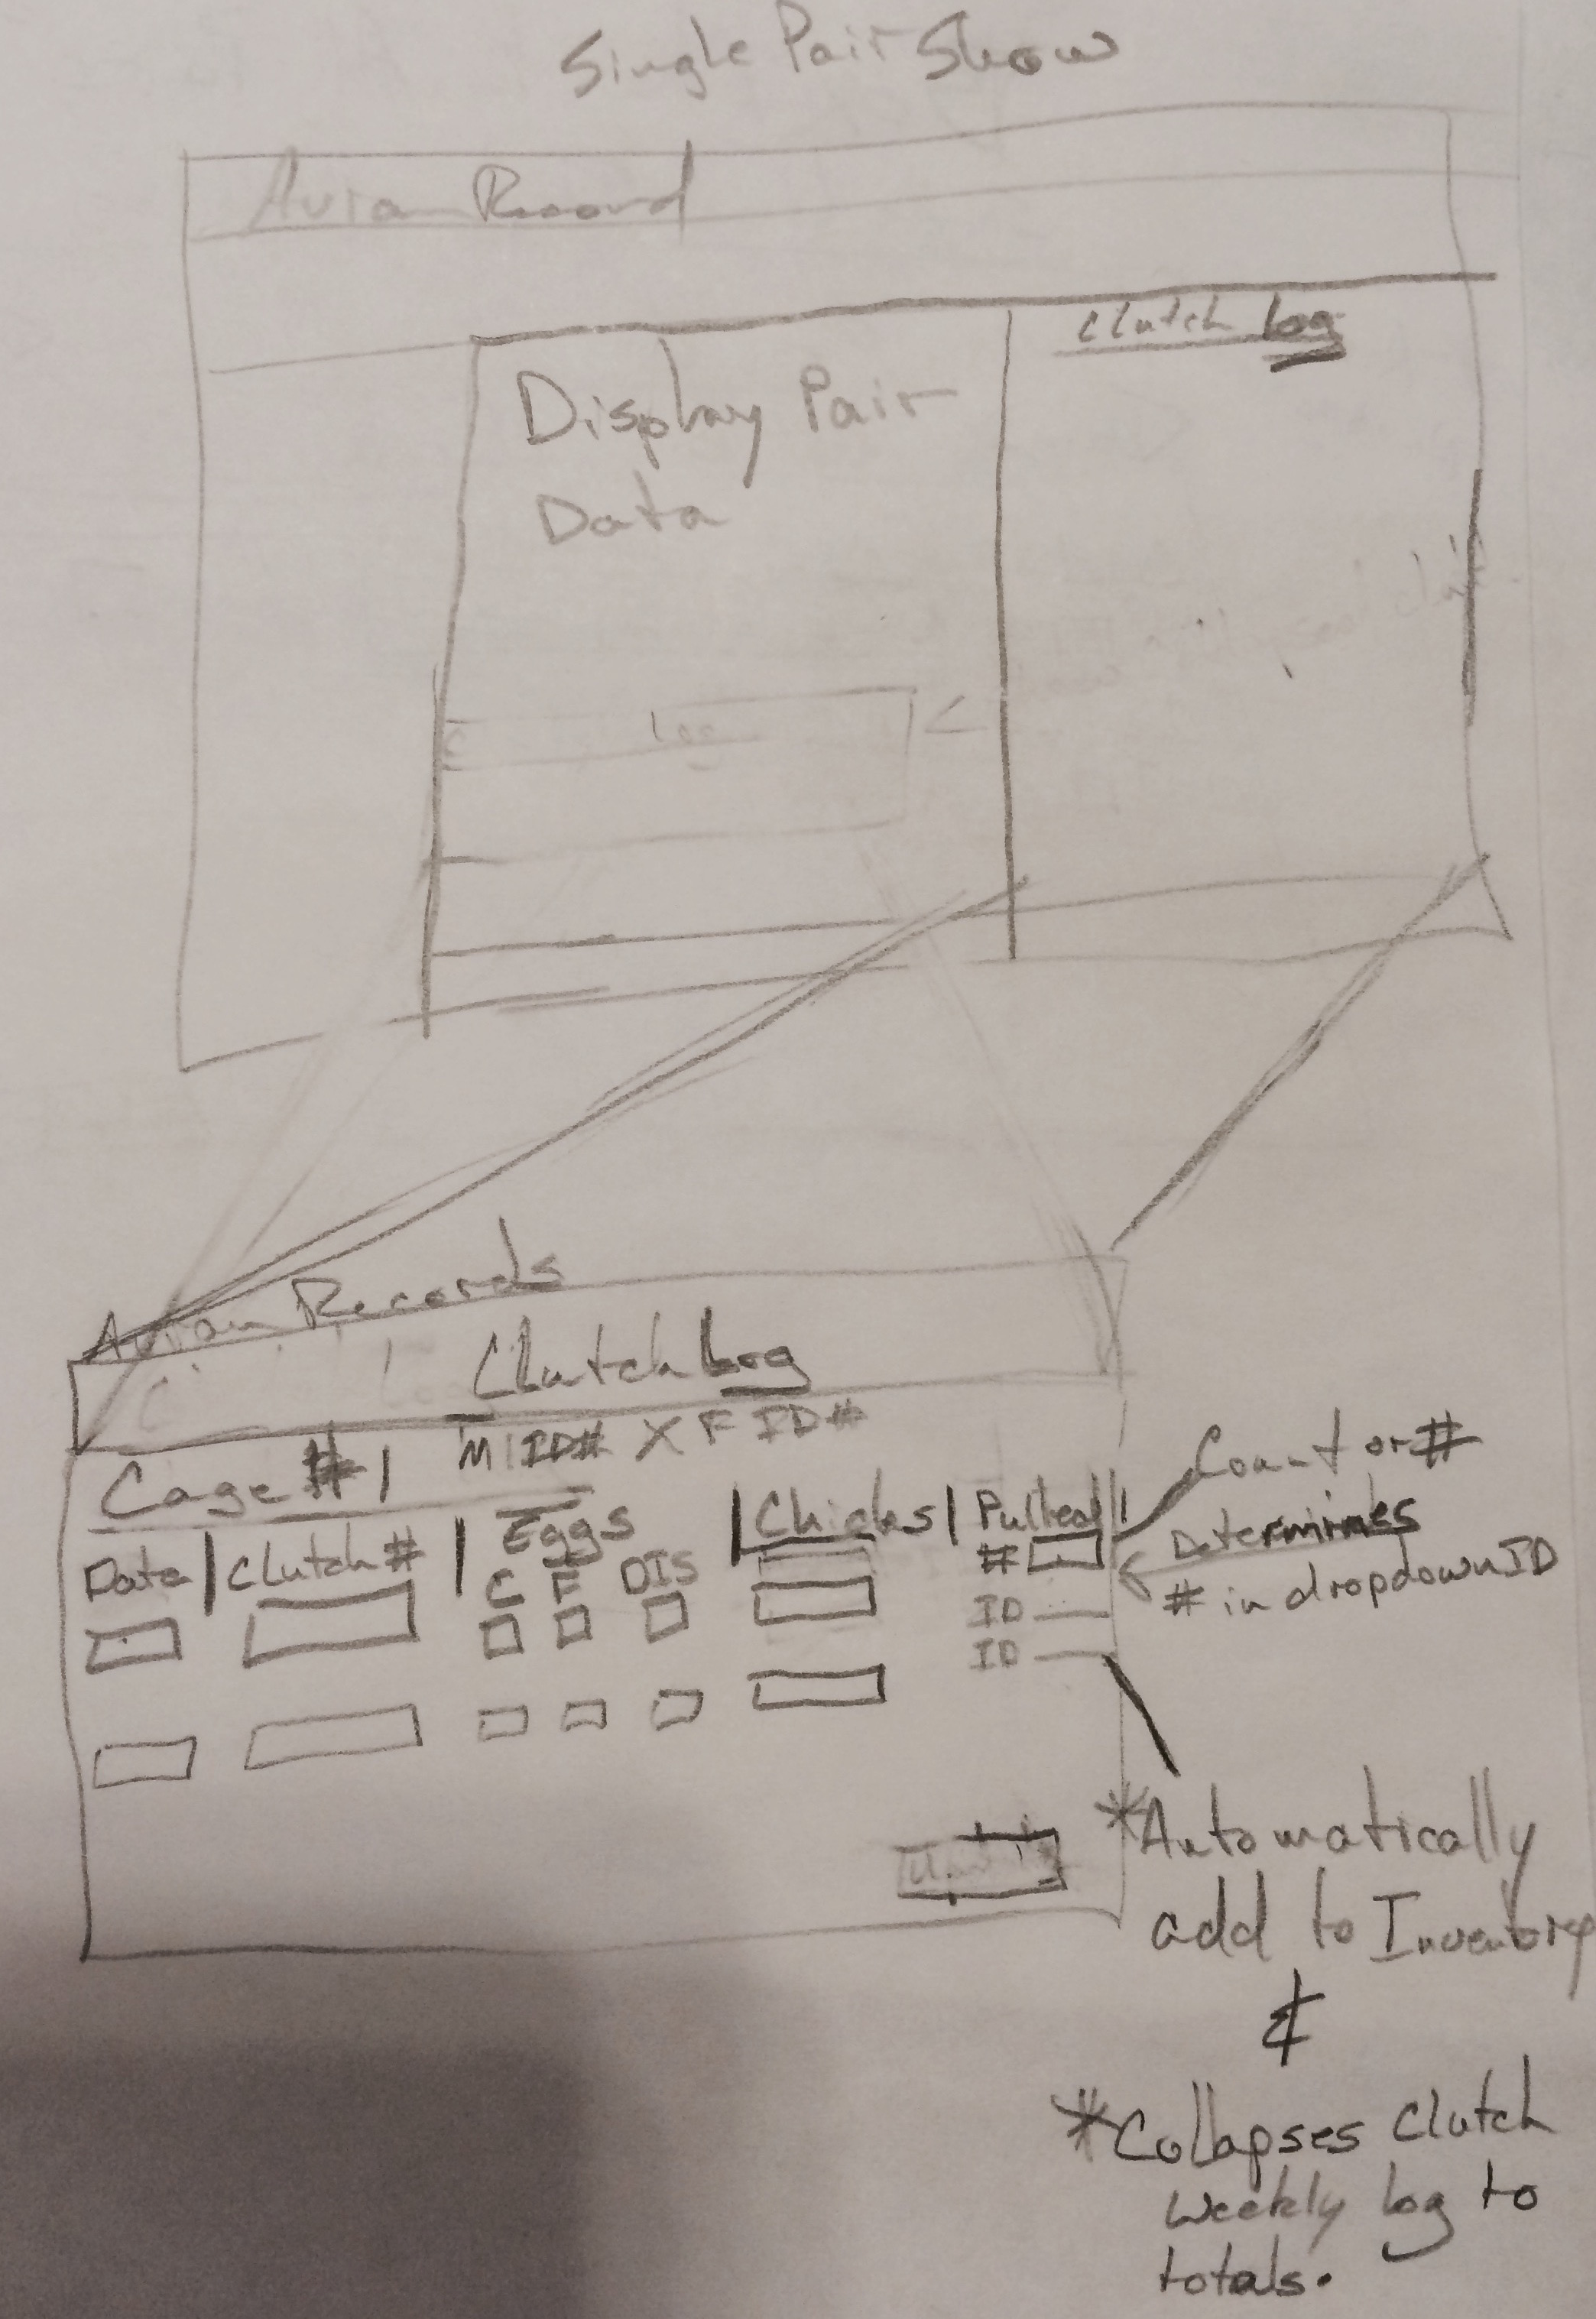 Single Pair Show
Avian Record
Clutch Log
Display Pair
Data
Log
Avian Records
Clutch Log
Cage #1 M ID# X F ID#
Date | Clutch # | Eggs | Chicks | Pulled |
C F DIS #
ID
ID
Count or #
Determines
# in dropdown ID
*Automatically
add to Inventory
&
*Collapses Clutch
weekly log to
totals.